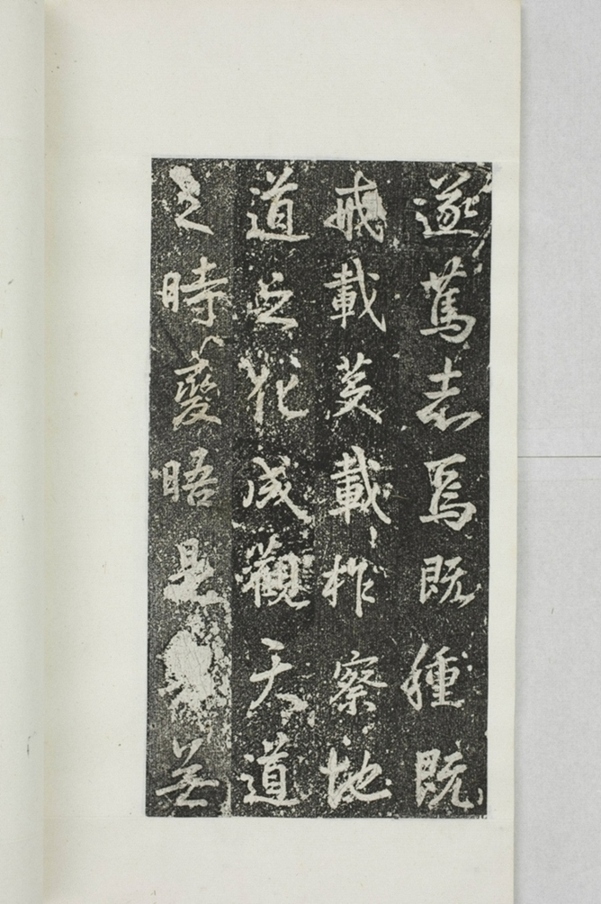 遂篤志焉既種既
戒載芟載柞察地
道之化成觀天道
之時變晤是